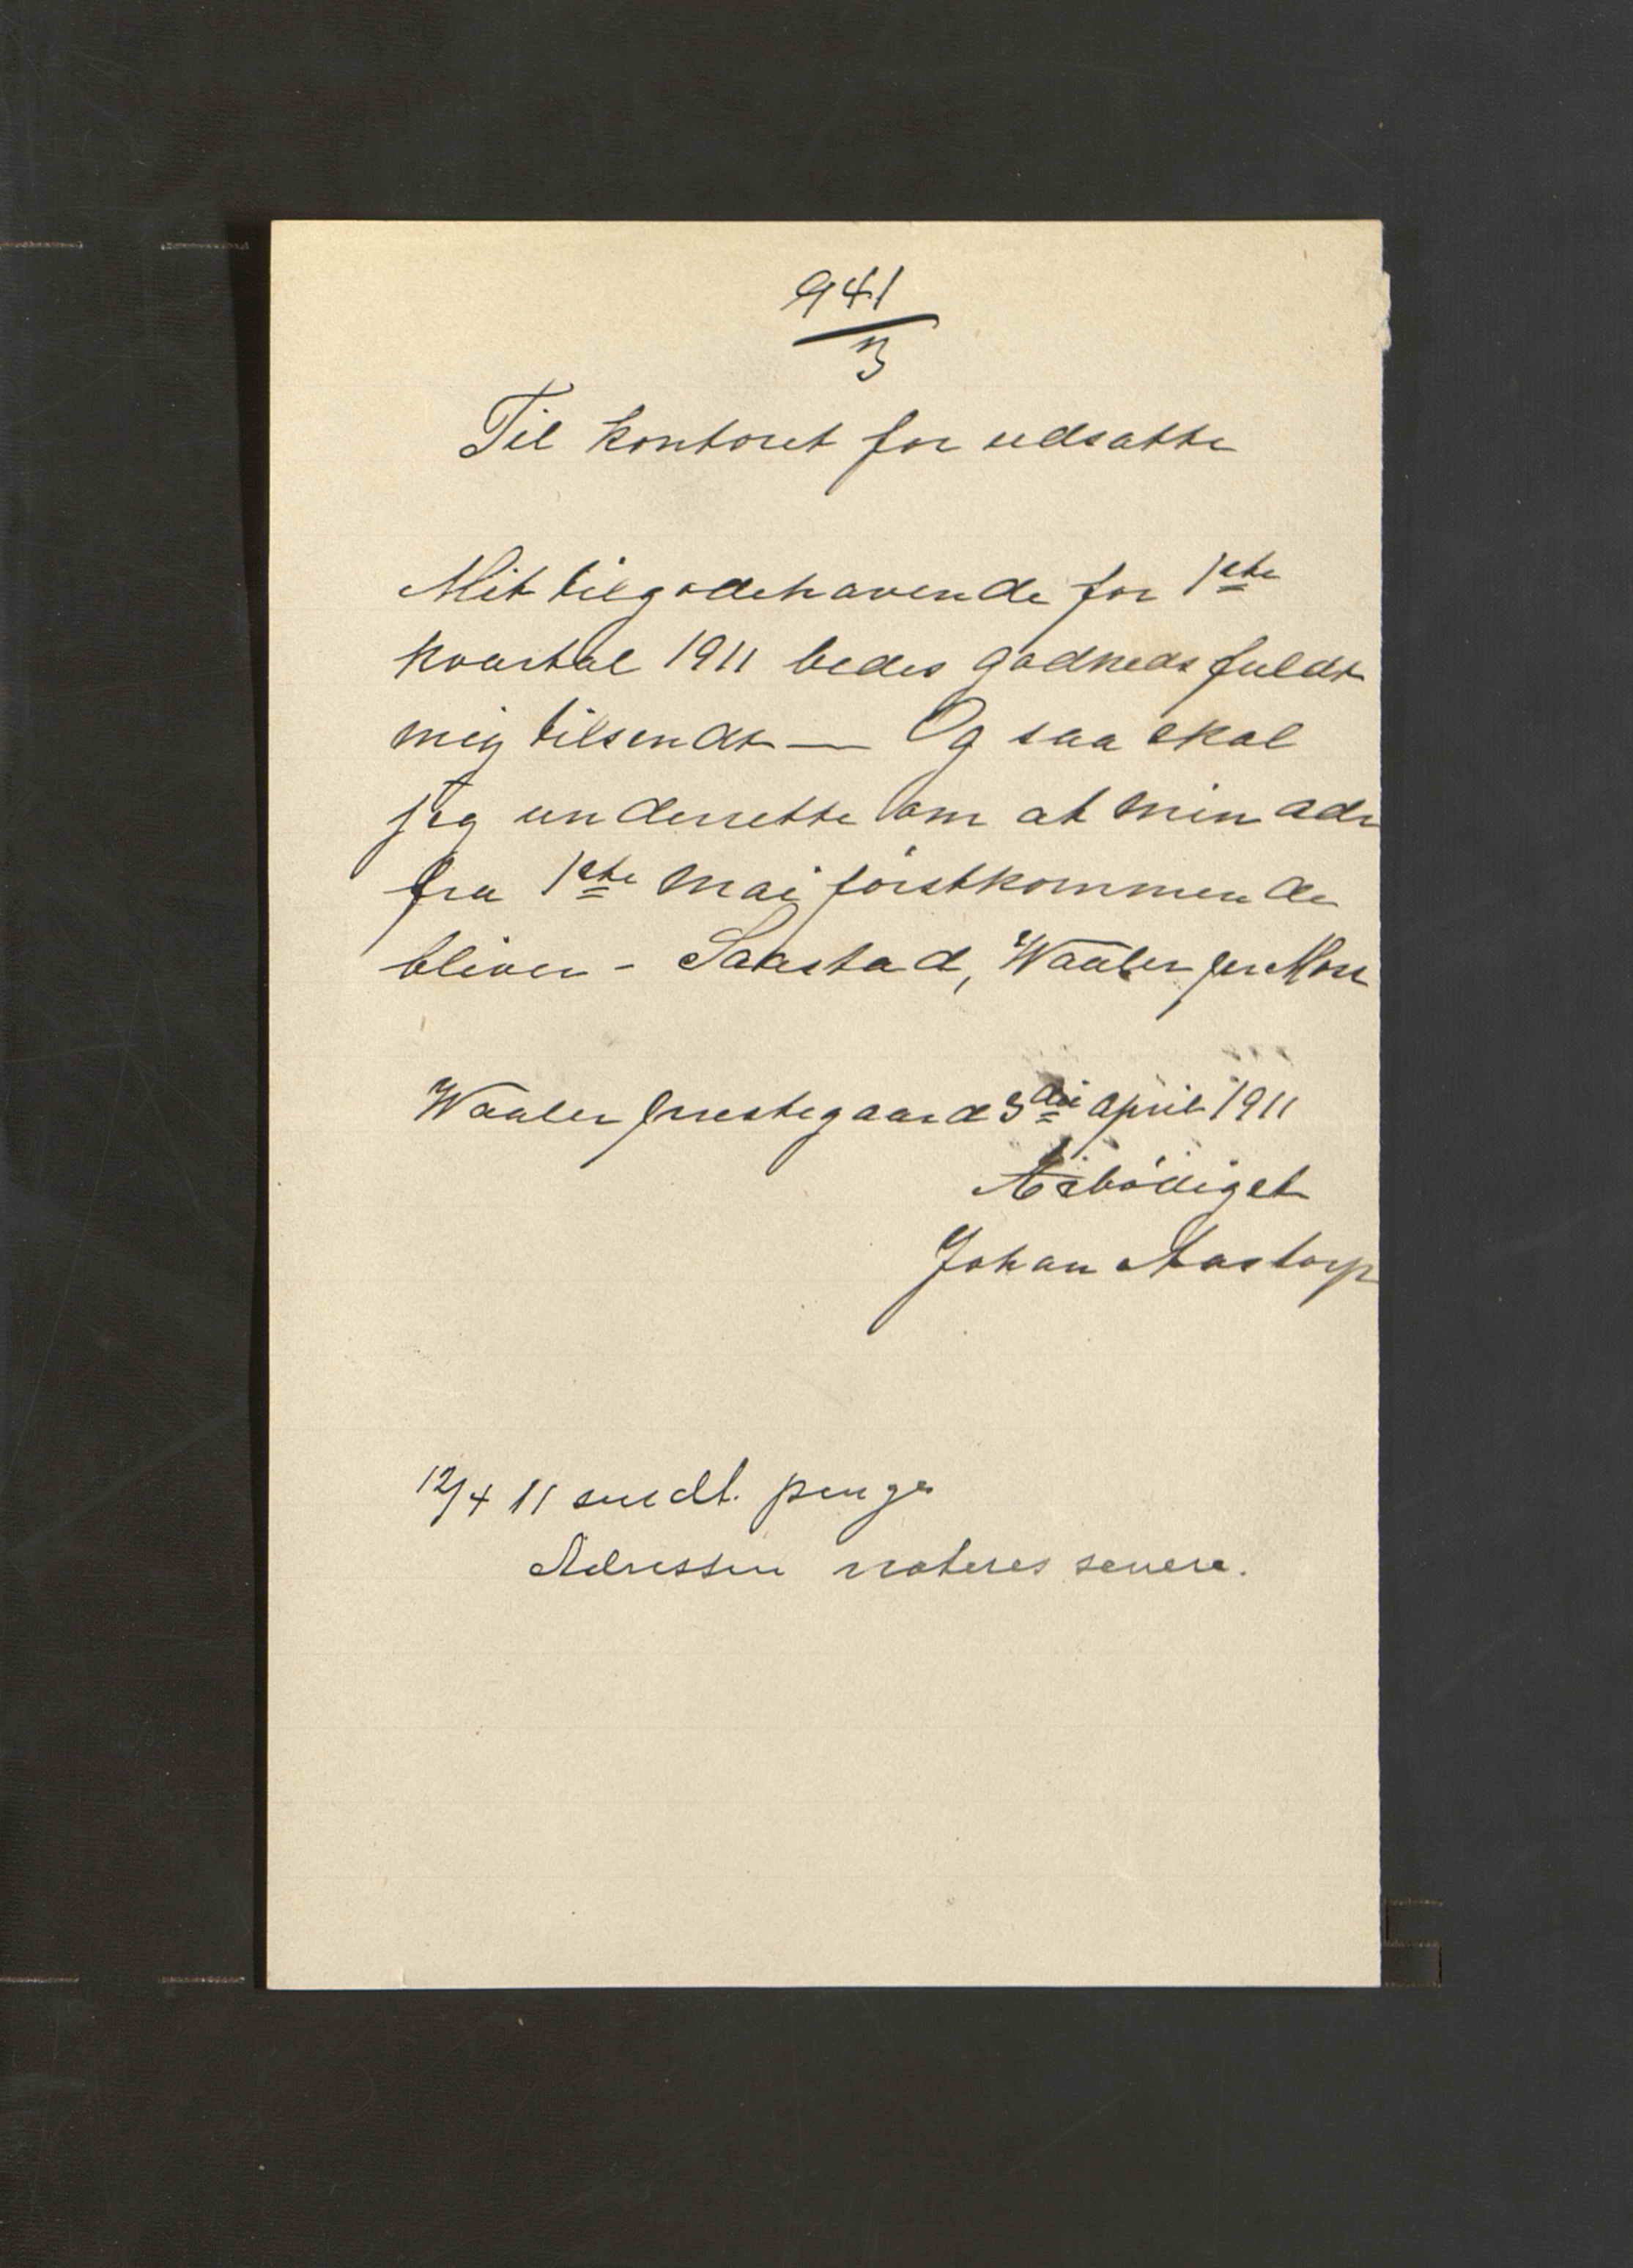 941
3
Til kontoret for udsatte
Mit tilgodehavende for 1ste
kvartal 1911 bedes godhedsfuldt
mig tilsendt — Og saa skal
jeg underrette om at min adr
fra 1ste mai förstkommende
bliver - Saastad, Waaler pr Moss
Waaler prestegaard 3die april 1911
Ærbödigst
Johan Aastorp
12/4 11 sendt. penger
Adressen noteres senere.